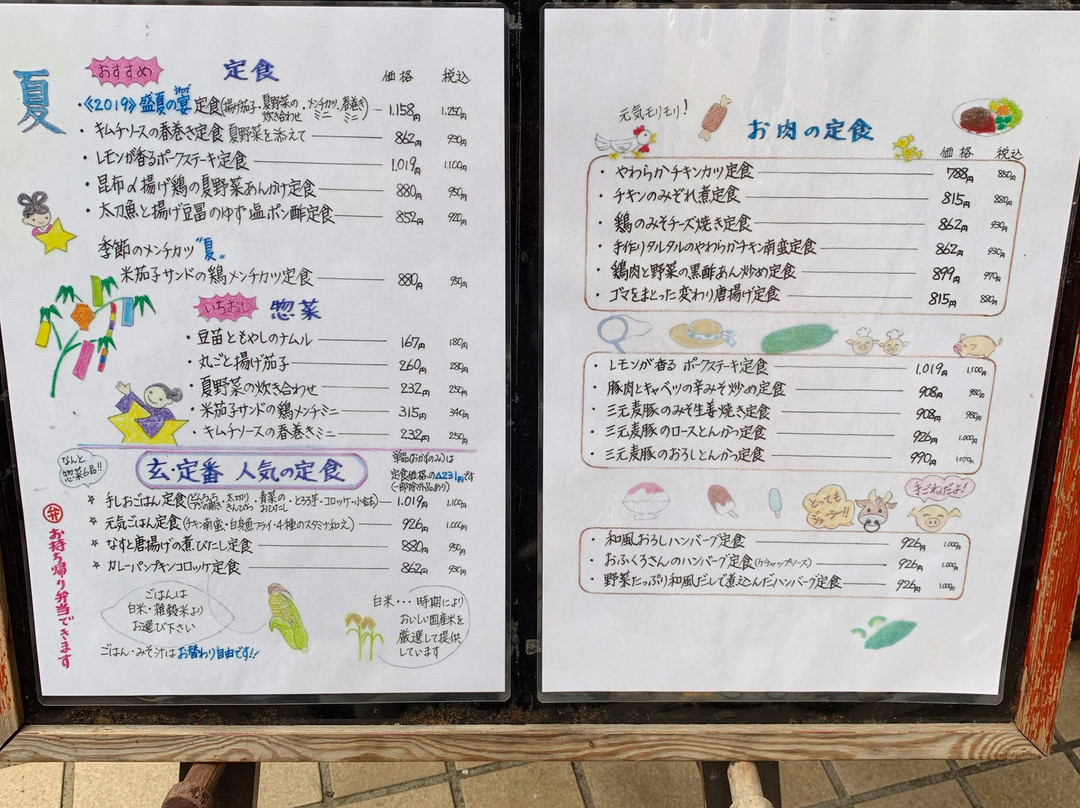 夏
おすすめ 定食 価格 税込
・《2019》盛夏の宴定食(揚げ茄子・夏野菜の炊き合わせ・メンチカツミニ・春巻きミニ) 1,158円 1,250円
・キムチソースの春巻き定食 夏野菜を添えて 862円 930円
・レモンが香るポークステーキ定食 1,019円 1,100円
・昆布〆揚げ鶏の夏野菜あんかけ定食 880円 950円
・太刀魚と揚げ豆冨のゆず塩ポン酢定食 852円 920円
季節のメンチカツ"夏"
米茄子サンドの鶏メンチカツ定食 880円 950円
いちおし 惣菜
・豆苗ともやしのナムル 167円 180円
・丸ごと揚げ茄子 260円 280円
・夏野菜の炊き合わせ 232円 250円
・米茄子サンドの鶏メンチミニ 315円 340円
・キムチソースの春巻きミニ 232円 250円
なんと惣菜6品!!
玄・定番 人気の定食
単品(おかずのみ)は
定食価格の△231円です
(一部除外品あり)
☆ 手しおごはん定食 ・とろろ芋・コロッケ 1,019円 1,100円
☆ 元気ごはん定食(チキン南蛮・白身魚フライ・4種のスタミナ和え) 926円 1,000円
☆ なすと唐揚げの煮びたし定食 880円 950円
☆ カレーパンプキンコロッケ定食 862円 930円
弁 お持ち帰り弁当できます
ごはんは
白米・雑穀米より
お選び下さい
ごはん・みそ汁はお替わり自由です!!
白米・・・時期により
おいしい国産米を
厳選して提供
しています
元気モリモリ!
お肉の定食
価格 税込
・やわらかチキンカツ定食 788円 850円
・チキンのみぞれ煮定食 815円 880円
・鶏のみそチーズ焼き定食 862円 930円
・手作りタルタルのやわらかチキン南蛮定食 862円 930円
・鶏肉と野菜の黒酢あん炒め定食 899円 970円
・ゴマをまとった変わり唐揚げ定食 815円 880円
・レモンが香る ポークステーキ定食 1,019円 1,100円
・豚肉とキャベツの辛みそ炒め定食 908円 980円
・三元麦豚のみそ生姜焼き定食 908円 980円
・三元麦豚のロースとんかつ定食 926円 1,000円
・三元麦豚のおろしとんかつ定食 990円 1,070円
とってもジューシー!!
手ごねだよ!
・和風おろしハンバーグ定食 926円 1,000円
・おふくろさんのハンバーグ定食(ケチャップソース) 926円 1,000円
・野菜たっぷり和風だしで煮込んだハンバーグ定食 926円 1,000円